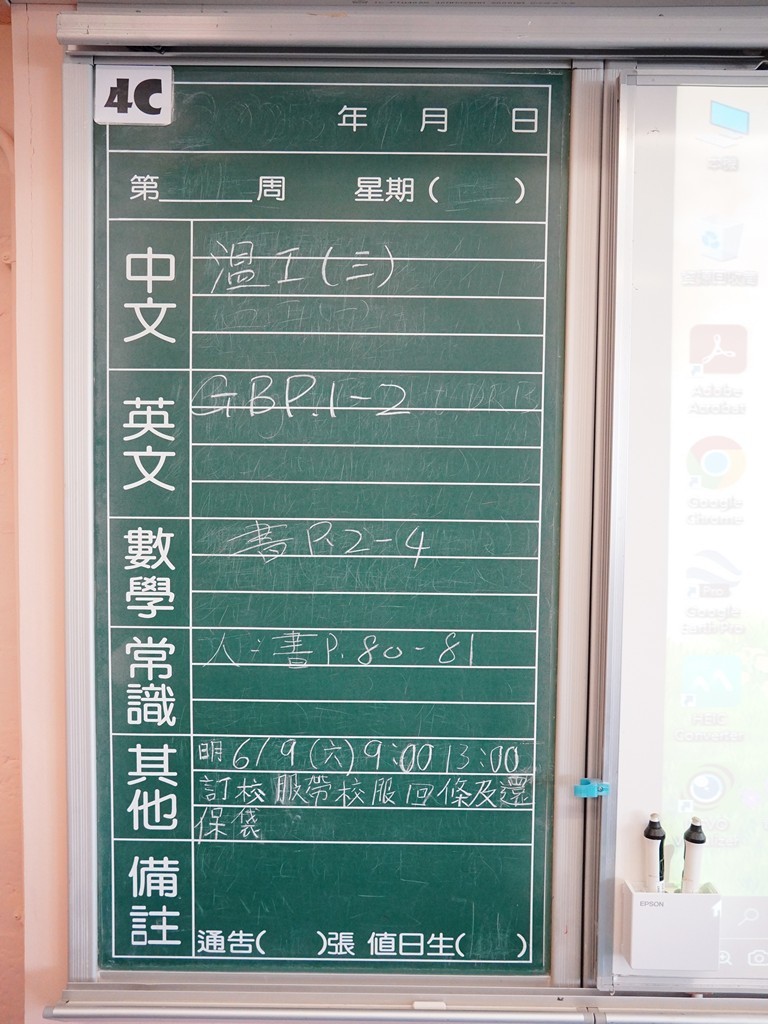 4C
年 月 日
第____周 星期( )
中文
溫工(三)
英文
GB P.1-2
數學
書 P.2-4
常識
人:書 P.80-81
其他
明 6/9 (六) 9:00 13:00
訂校服帶校服回條及還
保袋
備註
通告( )張 值日生( )
Adobe
Acrobat
Google
Chrome
Google
Earth Pro
EPSON